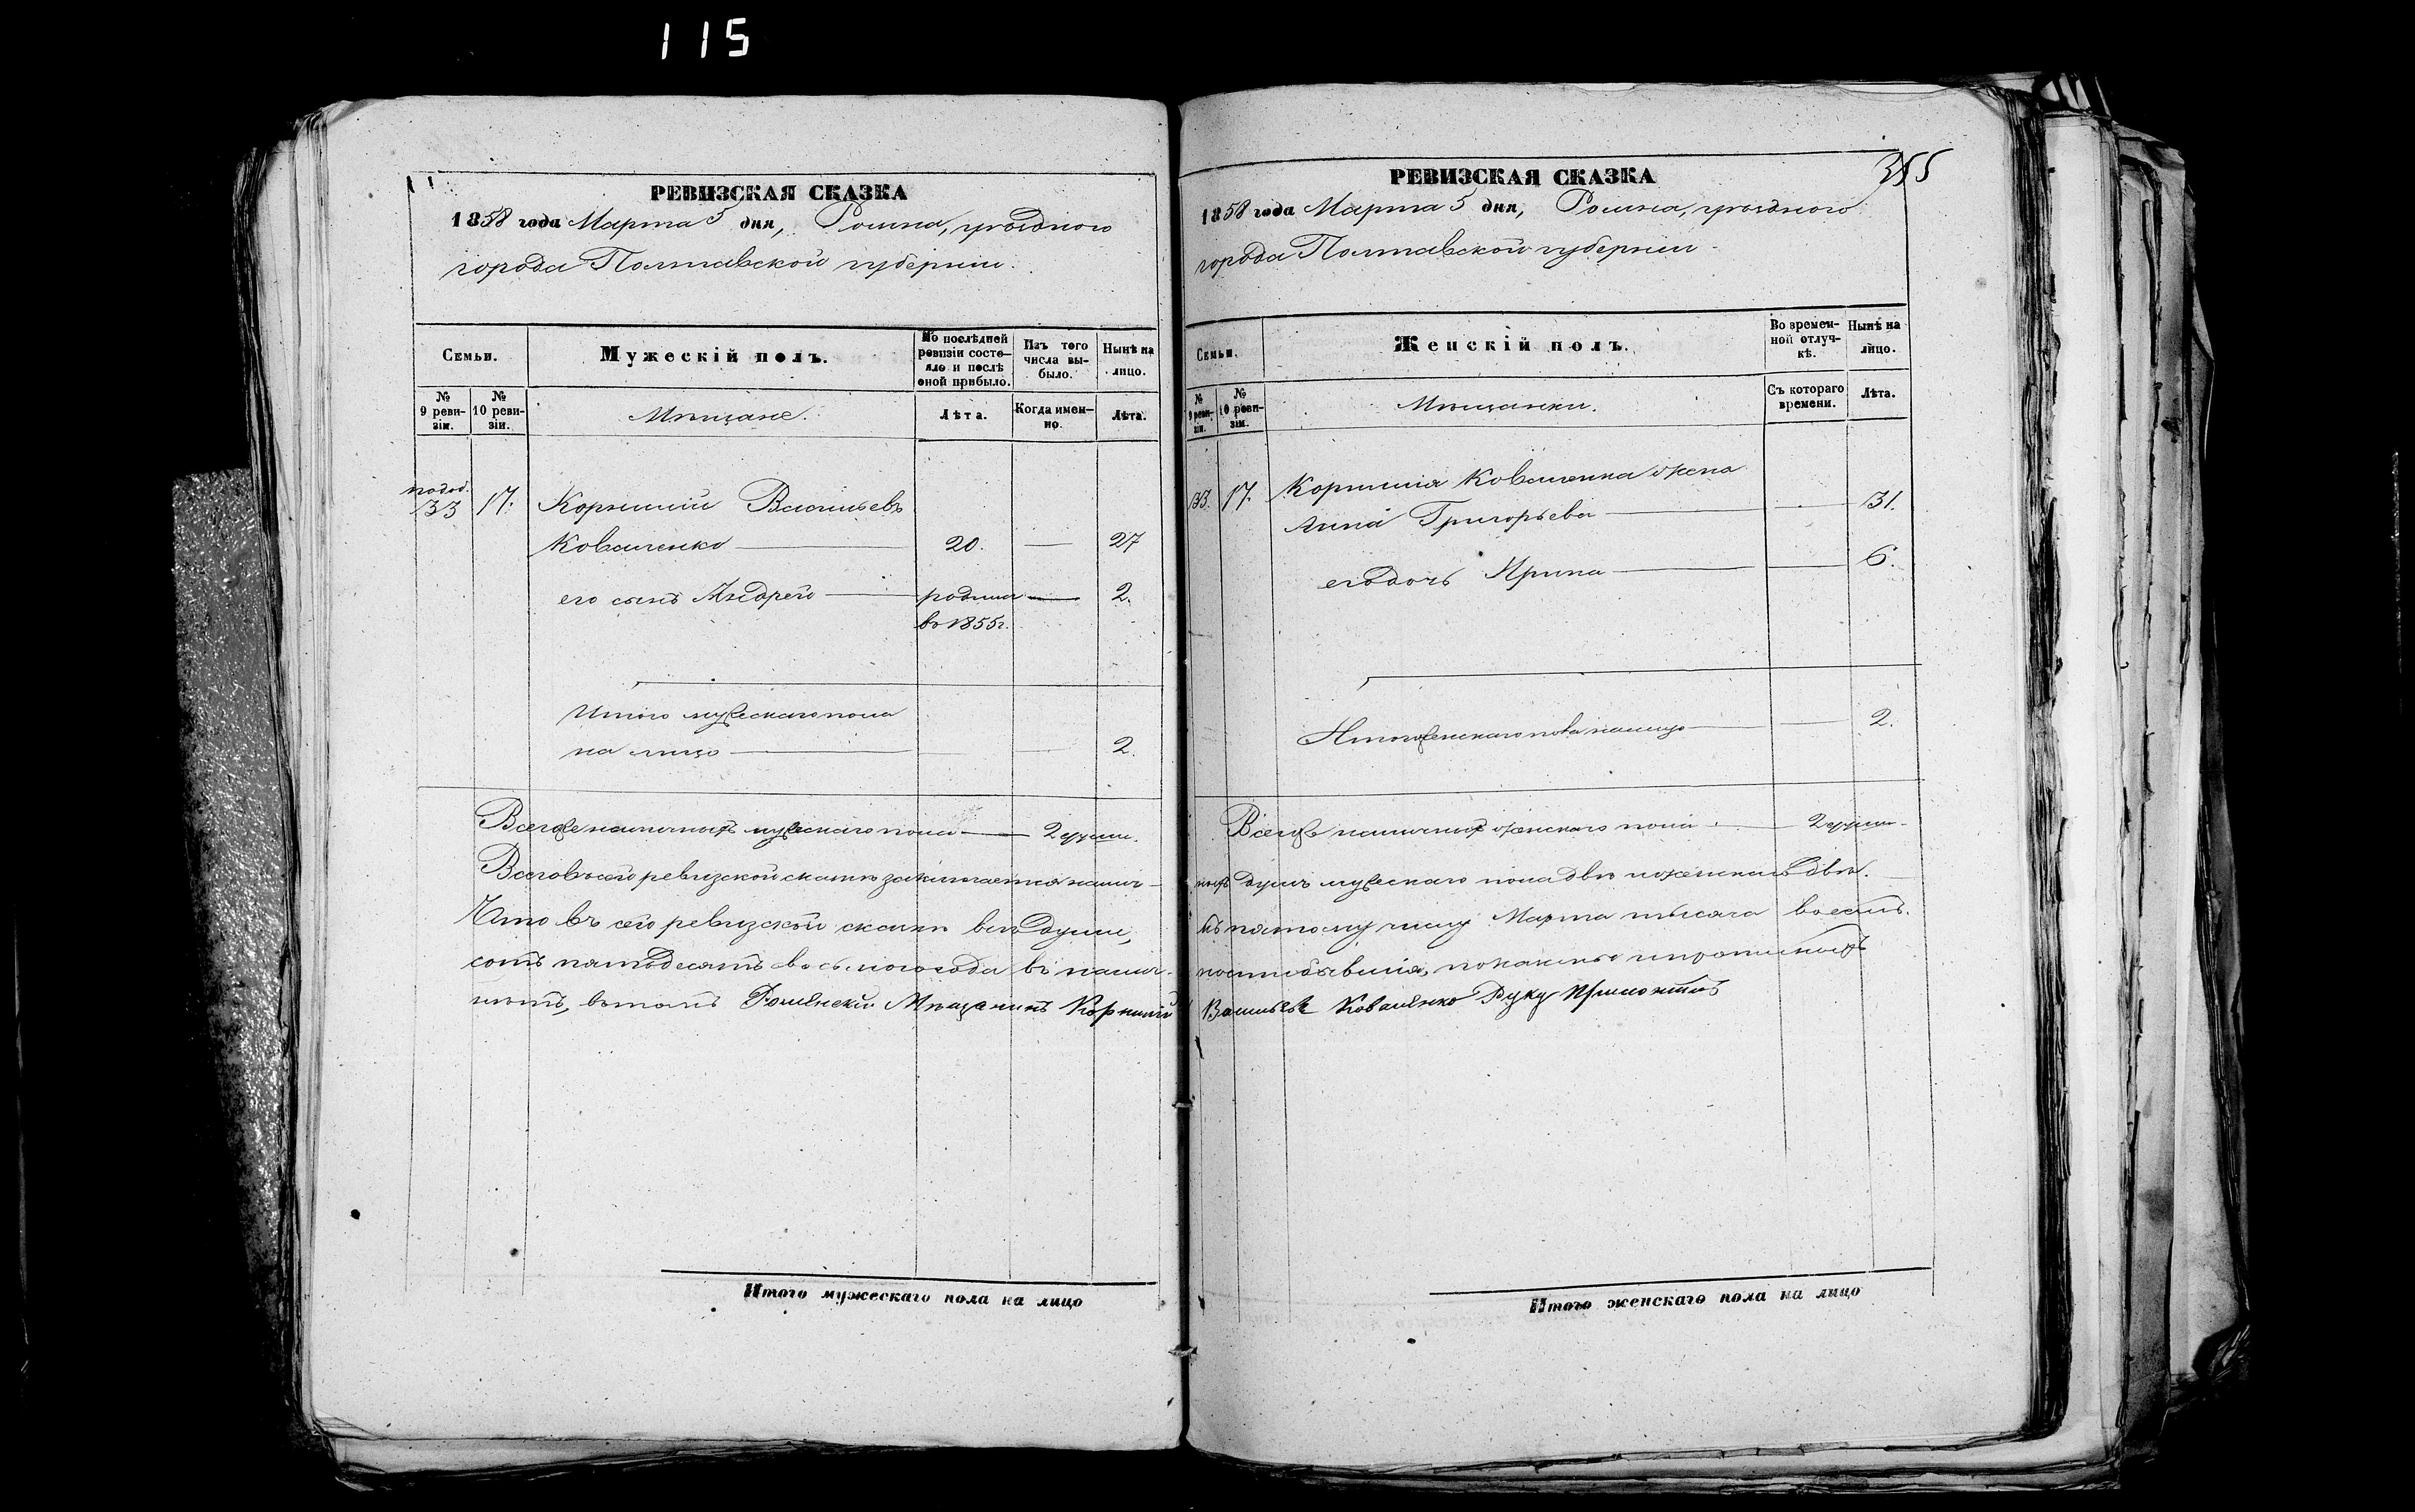 115
РЕВИЗСКАЯ СКАЗКА
1858 года Марта 5 дня, Ромна, уѣзднаго
города Полтавской губерніи.
Семьи.
Мужескій полъ.
По послѣдней ревизіи состояло и послѣ оной прибыло.
Изъ того числа выбыло.
Нынѣ на лицо.
№ 9 ревизіи.
№ 10 ревизіи.
Мѣщане.
Лѣта.
Когда именно.
Лѣта.
33 17. Корнилій Васильевъ
Коваленко 20. 27
его сынъ Андрей родился 2.
въ 1855г.
Итого мужескаго пола
на лицо 2.
Всего же наличныхъ мужескаго пола 2 души.
Всего въ сей ревизской сказкѣ заключается налич-
Что въ сей ревизской сказкѣ всѣ души,
сотъ пятьдесятъ восьмого года въ налич-
ность, въ томъ Роменскій Мѣщанинъ Корнилій
Итого мужескаго пола на лицо
355
РЕВИЗСКАЯ СКАЗКА
1858 года Марта 5 дня, Ромна, уѣзднаго
города Полтавской губерніи
Семьи.
Женскій полъ.
Во временной отлучкѣ.
Нынѣ на лицо.
№ 9 ревизіи.
№ 10 ревизіи.
Мѣщанки.
Съ котораго времени.
Лѣта.
33. 17. Корнилія Коваленка жена
Анна Григорьева 31.
его дочь Ирина 6.
Итого женскаго пола на лицо 2.
Всего же наличныхъ женскаго пола 2 души
ныхъ душъ мужескаго пола двѣ и женскаго двѣ.
къ пятому числу Марта тысяча восемь
Васильевъ Коваленко Руку приложилъ
Итого женскаго пола на лицо